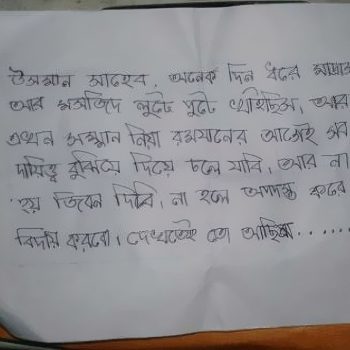 উসমান সাহেব, অনেক দিন ধরে মাদ্রাসা
আর মসজিদে লুটে পুটে খাইছিস, আর
এখন সম্মান নিয়া রমযানের আগেই সব
দায়িত্ব বুঝিয়ে দিয়ে চলে যাবি, আর না
হয় জিবন দিবি, না হলে অপদস্ত করে
বিদায় করবো, দেখতেই তো আছিস......